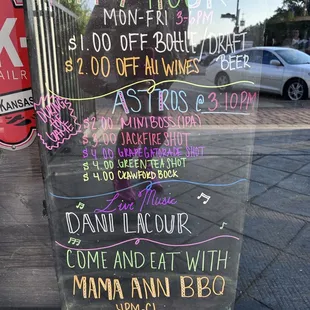 MON-FRI 3-6PM
$1.00 OFF BOTTLE/DRAFT
BEER
$2.00 OFF ALL WINES
ASTROS @ 3:10PM
$2.00 MINIBOSS (IPA)
$3.00 JACKFIRE SHOT
$4.00 GRAPE GATORADE SHOT
$4.00 GREEN TEA SHOT
$4.00 CRAWFORD BOCK
Live Music
DANI LACOUR
COME AND EAT WITH
MAMA ANN BBQ
4PM-CL
Kansas